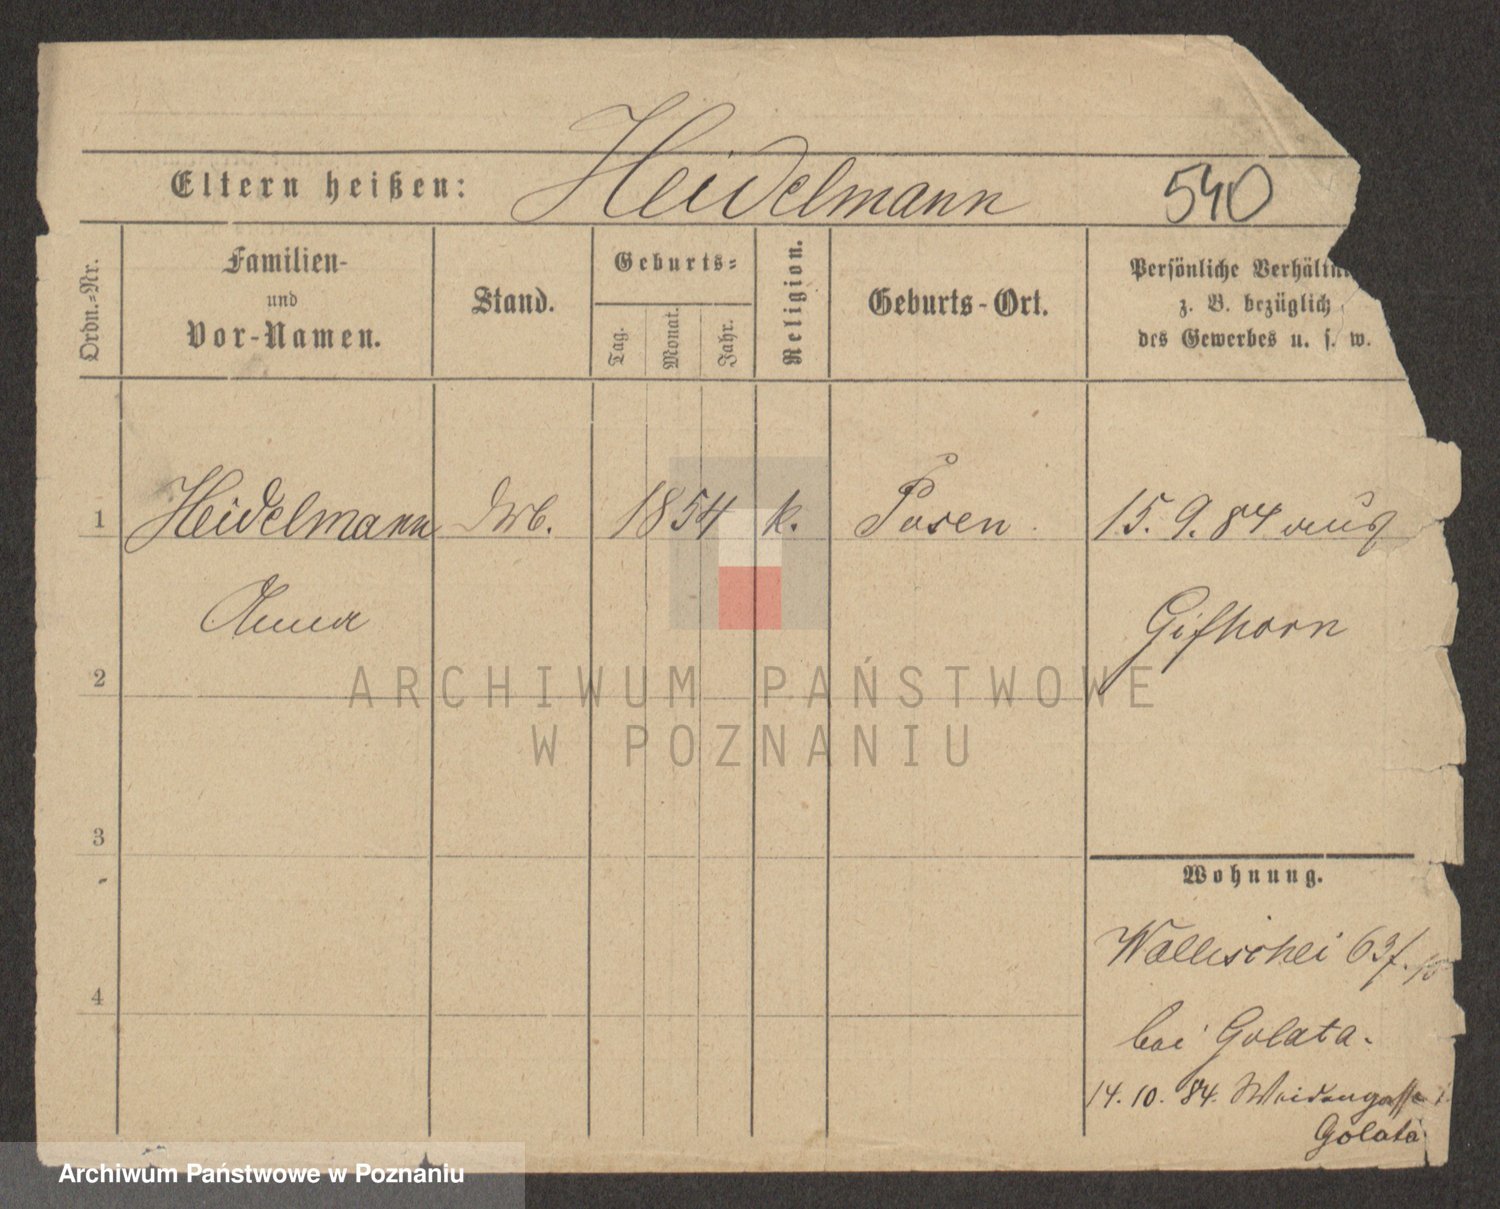 Eltern heißen: Heidelmann 540
Ordn.=Nr.
Familien-
und
Vor-Namen.
Stand.
Geburts=
Tag.
Monat.
Jahr.
Religion.
Geburts-Ort.
Persönliche
z. B. bezüglich
des Gewerbes u. s. w.
1 Heidelmann 1854 k. Posen. 15. 9. 84 aus
Anna Gifhorn
2
ARCHIWUM PAŃSTWOWE
W POZNANIU
3
Wohnung.
Wallischei 63
4
bei Golata.
14. 10. 84. Weidengasse
Golata
Archiwum Państwowe w Poznaniu